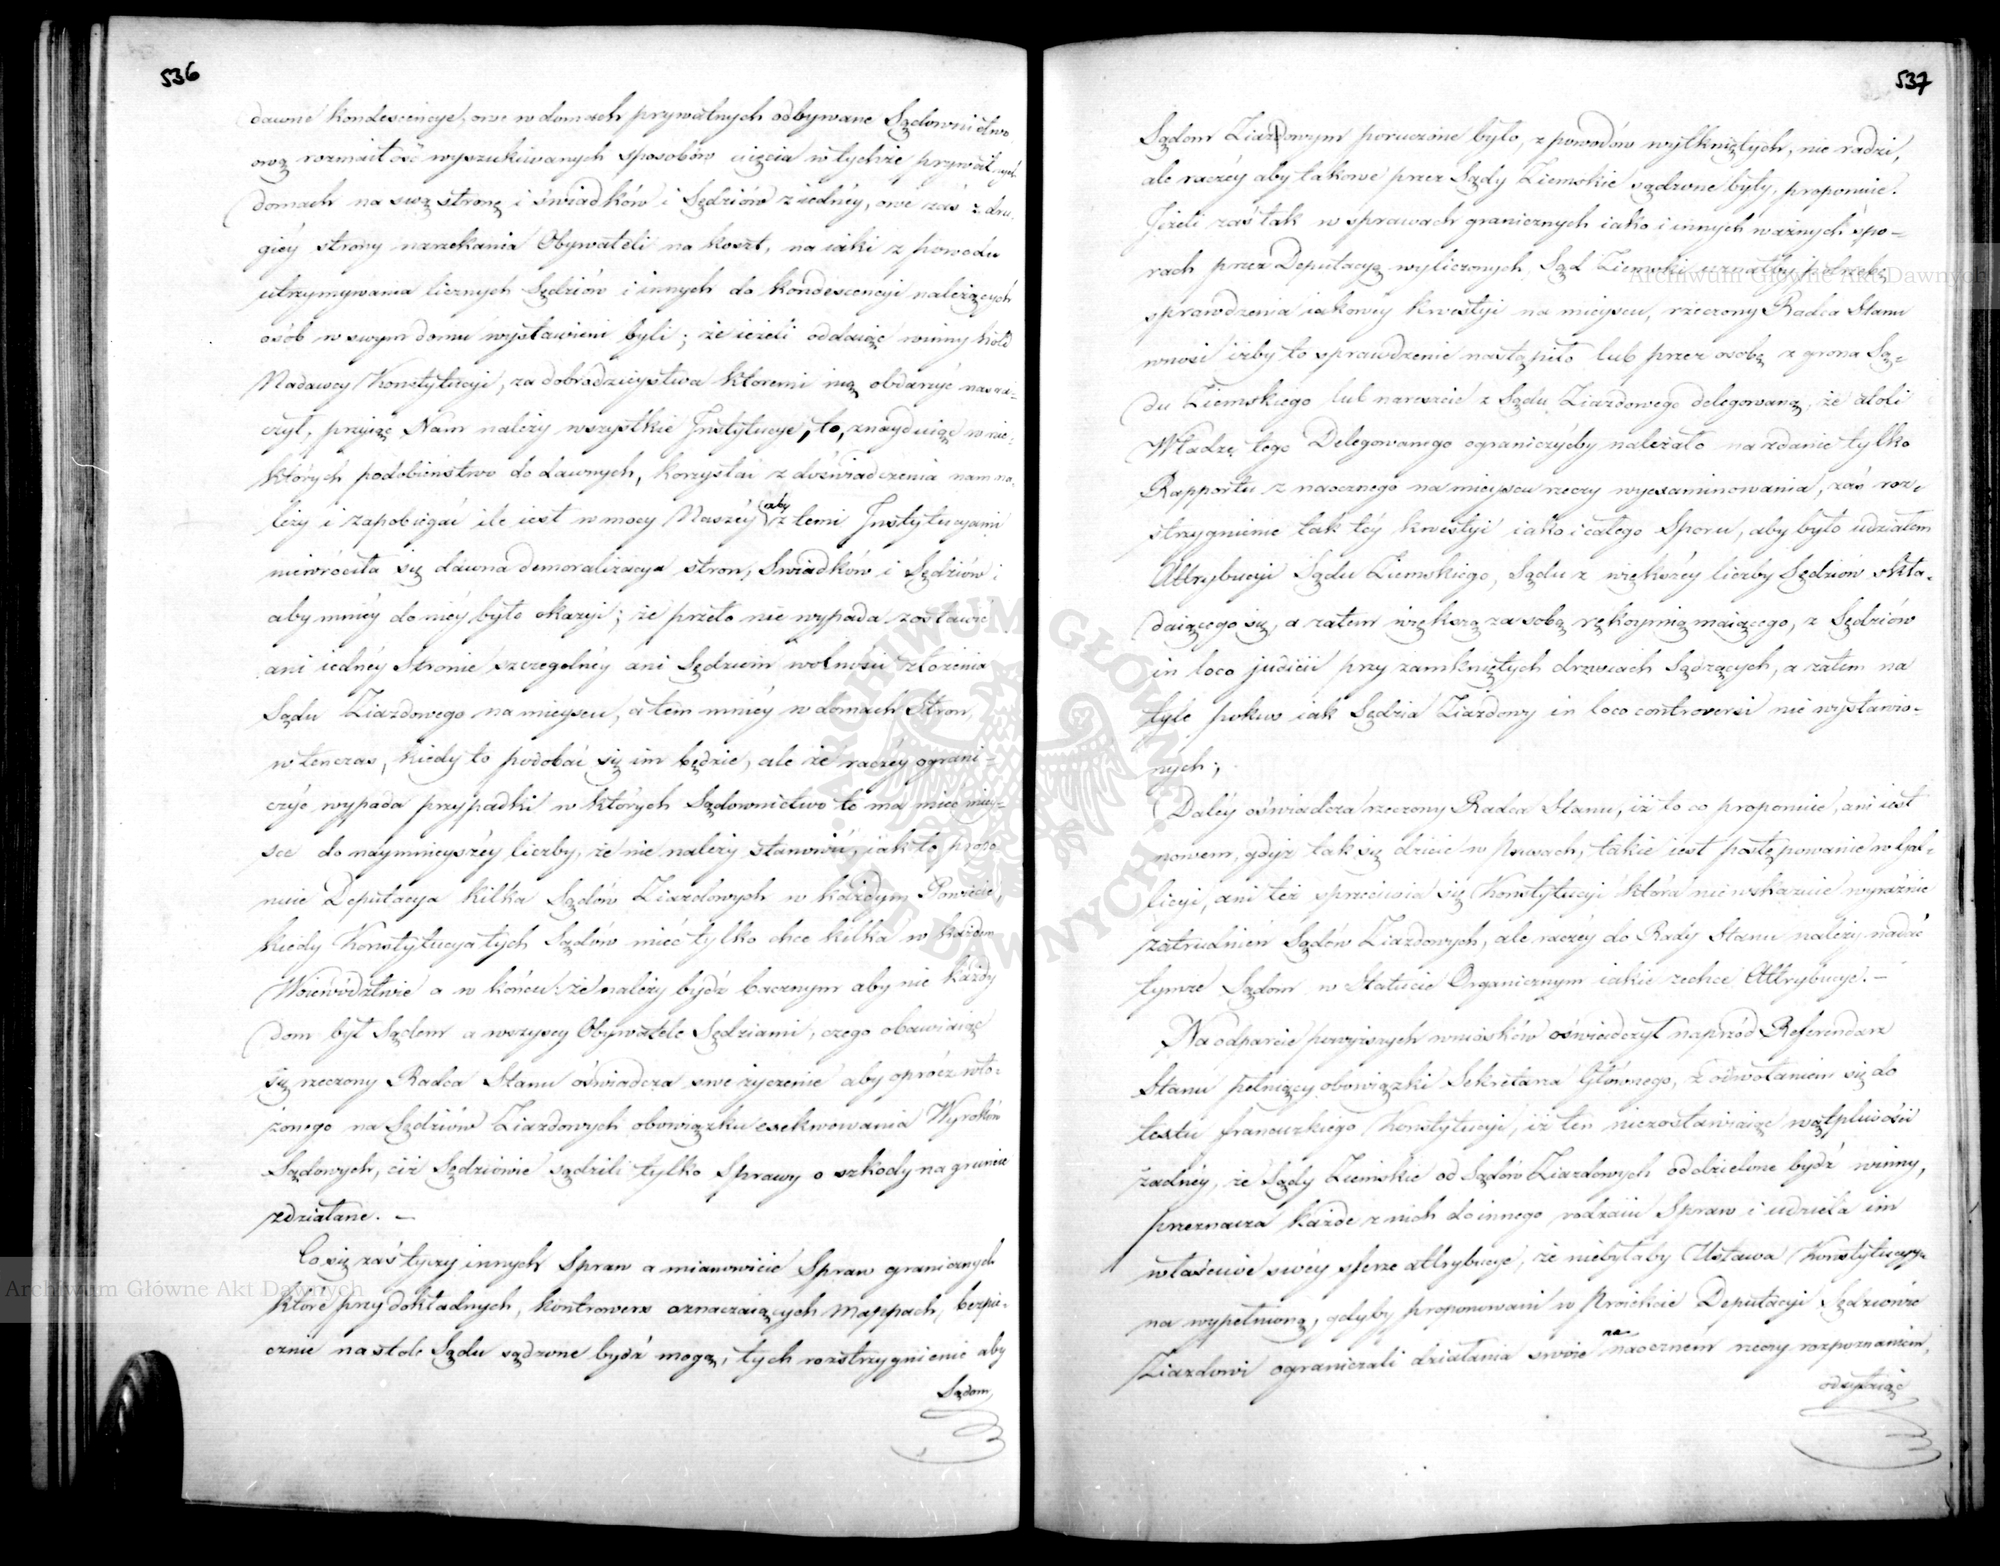 536
dawne kondescencye, owe w domach prywatnych odbywane Sądownictwo,
ową rozmaitość wyszukiwanych sposobów uięcia w tychże prywatnych
domach na swą stronę i świadków i Sędziów z iednéy, owe zaś z dru-
giéy strony narzekania Obywateli na koszt, na iaki z powodu
utrzymywania licznych Sędziów i innych do kondescencyi należących
osób w swym domu wystawieni byli; że ieżeli oddaiąc winny hołd
Nadawcy Konstytucyi, za dobrodzieystwa któremi nią obdarzyć nas ra-
czył, przyiąć Nam należy wszystkie Instytucye, to, znayduiąc w nie-
których podobieństwo do dawnych, korzystać z doświadczenia nam na-
leży i zapobiegać ile iest w mocy Naszéy aby z temi Instytucyami
niewróciła się dawna demoralizacya stron, Swiadków i Sędziów i
aby mniéy do niéy było okazyi; że przeto nie wypada zostawić
ani iednéy Stronie szczególnéy ani Sędziom wolności złożenia
Sądu Ziazdowego na mieyscu, a tem mniéy w domach Stron
wtenczas, kiedy to podobać się im będzie, ale że raczéy ograni-
czyć wypada przypadki w których Sądownictwo to ma mieć miey-
sce do naymnieyszéy liczby, że nie należy stanowić, iak to propo
nuie Deputacya kilka Sądów Ziazdowych w każdym Powiecie,
kiedy Konstytucya tych Sądów mieć tylko chce kilka w każdem
Woiewództwie a w końcu że należy bydź bacznym aby nie każdy
dom był Sądem a wszyscy Obywatele Sędziami; czego obawiaiąc
się rzeczony Radca Stanu oświadcza swe życzenie aby oprócz wło-
żonego na Sędziów Ziazdowych obowiązku exekwowania Wyroków
Sądowych, ciż Sędziowie sądzili tylko Sprawy o szkody na gruncie
zdziałane. —
Co się zaś tyczy innych Spraw a mianowicie Spraw granicznych
które przy dokładnych, kontrowers oznaczaiących Mappach, bezpie-
cznie na stole Sądu sądzone bydź mogą, tych rozstrzygnienie aby
Sądom
537
Sądom Ziazdowym poruczone było, z powodów wytkniętych, nie radzi,
ale raczéy aby takowe przez Sądy Ziemskie sądzone były, proponuie.
Jeżeli zaś tak w sprawach granicznych iako i innych ważnych spo-
rach przez Deputacyą wyliczonych, Sąd Ziemski uznałby potrzebę
sprawdzenia iakowéy kwestyi na mieyscu, rzeczony Radca Stanu
wnosi iżby to sprawdzenie nastąpiło lub przez osobę z grona Są-
du Ziemskiego lub nareszcie z Sądu Ziazdowego delegowaną, że atoli
Władzę tego Delegowanego ograniczyćby należało na zdanie tylko
Rapportu z naocznego na mieyscu rzeczy wyexaminowania, zaś roz-
strzygnienie tak téy kwestyi iako i całego Sporu, aby było udziałem
Attrybucyi Sądu Ziemskiego, Sądu z większéy liczby Sędziów skła-
daiącego się, a zatem większą za sobą rękoymią maiącego, z Sędziów
in loco judicii przy zamkniętych drzwiach Sądzących, a zatem na
tyle pokus iak Sędzia Ziazdowy in loco controversi nie wystawio-
nych;
Daléy oświadcza rzeczony Radca Stanu, iż to co proponuie, ani iest
nowem, gdyż tak się dzieie w Prusach, takie iest postępowanie w Gal-
licyi, ani też sprzeciwia się Konstytucyi która nie wskazuie wyraźnie
zatrudnień Sądów Ziazdowych, ale raczéy do Rady Stanu należy nadać
tymże Sądom w Statucie Organicznym iakie zechce Attrybucye. —
Na odparcie powyższych wniosków oświadczył naprzód Referendarz
Stanu pełniący obowiązki Sekretarza Głównego, z odwołaniem się do
textu francuzkiego Konstytucyi, iż ten niezostawiaiąc wątpliwości
żadnéy, że Sądy Ziemskie od Sądów Ziazdowych oddzielone bydź winny,
przeznacza każde z nich do innego rodzaiu Spraw i udziela im
właściwe swéy sferze attrybucye, że niebyłaby Ustawa Konstytucyy-
na wypełnioną, gdyby proponowani w Proiekcie Deputacyi Sędziowie
Ziazdowi ograniczali działania swoie na naocznem rzeczy rozpoznaniem,
odsyłaiąc
Archiwum Główne Akt Dawnych
Archiwum Główne Akt Dawnych
ARCHIWUM GŁÓWNE AKT DAWNYCH